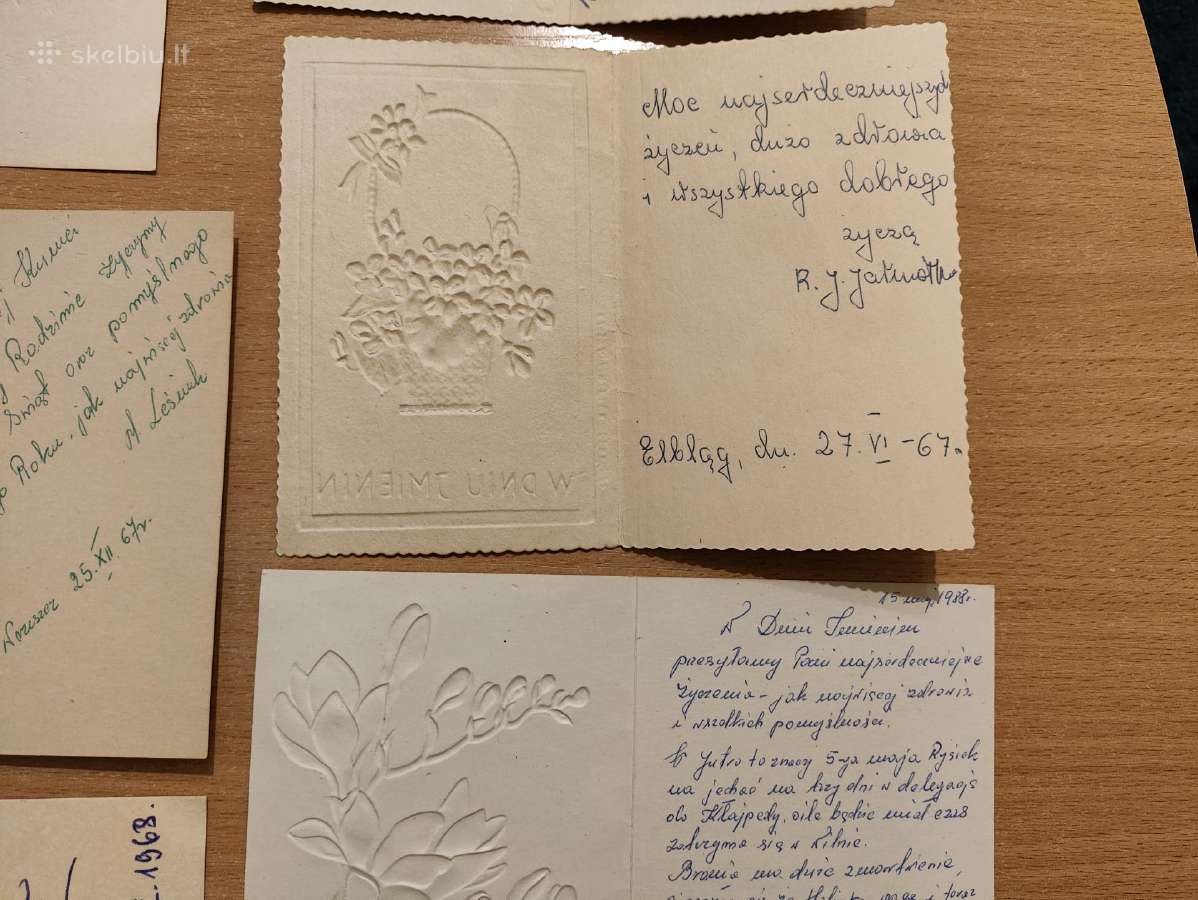 skelbiu.lt
Moc najserdeczniejszych
życzeń, dużo zdrowia
i wszystkiego dobrego
życzą
R. J. Jałmo
Elbląg, dn. 27. VI -67.
W DNIU IMIENIN
Rodzinie życzymy
Świąt oraz pomyślnego
Roku, jak najwięcej zdrowia
Leśniak
25. XII. 67r.
1968.
1988r.
W Dniu Imienin
przesyłamy Pani najserdeczniejsze
życzenia - jak najwięcej zdrowia
i wszelkich pomyślności.
Jutro to znaczy 5-go maja Rysiek
ma jechać na trzy dni w delegację
do Kłajpedy, o ile będzie miał czas
zatrzyma się w Wilnie.
Bronia ma duże zmartwienie,